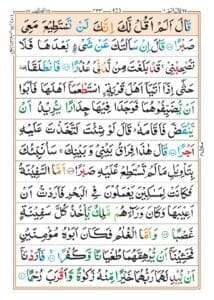 قَالَ اَلَمْ اَقُلْ لَّكَ اِنَّكَ لَنْ تَسْتَطِيْعَ مَعِىَ
صَبْرًا ۞ قَالَ اِنْ سَاَلْتُكَ عَنْ شَىْءٍۭ بَعْدَهَا فَلَا
تُصٰحِبْنِىْ ۚ قَدْ بَلَغْتَ مِنْ لَّدُنِّىْ عُذْرًا ۞ فَانْطَلَقَا ࣞ
حَتّٰۤى اِذَاۤ اَتَيَاۤ اَهْلَ قَرْيَةِ اۨسْتَطْعَمَاۤ اَهْلَهَا فَاَبَوْا
اَنْ يُّضَيِّفُوْهُمَا فَوَجَدَا فِيْهَا جِدَارًا يُّرِيْدُ اَنْ
يَّنْقَضَّ فَاَقَامَهٗ ؕ قَالَ لَوْ شِئْتَ لَتَّخَذْتَ عَلَيْهِ
اَجْرًا ۞ قَالَ هٰذَا فِرَاقُ بَيْنِىْ وَبَيْنِكَ ۚ سَاُنَبِّئُكَ
بِتَاْوِيْلِ مَا لَمْ تَسْتَطِعْ عَّلَيْهِ صَبْرًا ۞ اَمَّا السَّفِيْنَةُ
فَكَانَتْ لِمَسٰكِيْنَ يَعْمَلُوْنَ فِى الْبَحْرِ فَاَرَدْتُّ اَنْ
اَعِيْبَهَا وَكَانَ وَرَآءَهُمْ مَّلِكٌ يَّاْخُذُ كُلَّ سَفِيْنَةٍ
غَصْبًا ۞ وَاَمَّا الْغُلٰمُ فَكَانَ اَبَوٰهُ مُؤْمِنَيْنِ
فَخَشِيْنَاۤ اَنْ يُّرْهِقَهُمَا طُغْيَانًا وَّكُفْرًا ۞ فَاَرَدْنَاۤ
اَنْ يُّبْدِلَهُمَا رَبُّهُمَا خَيْرًا مِّنْهُ زَكٰوةً وَّاَقْرَبَ رُحْمًا ۞